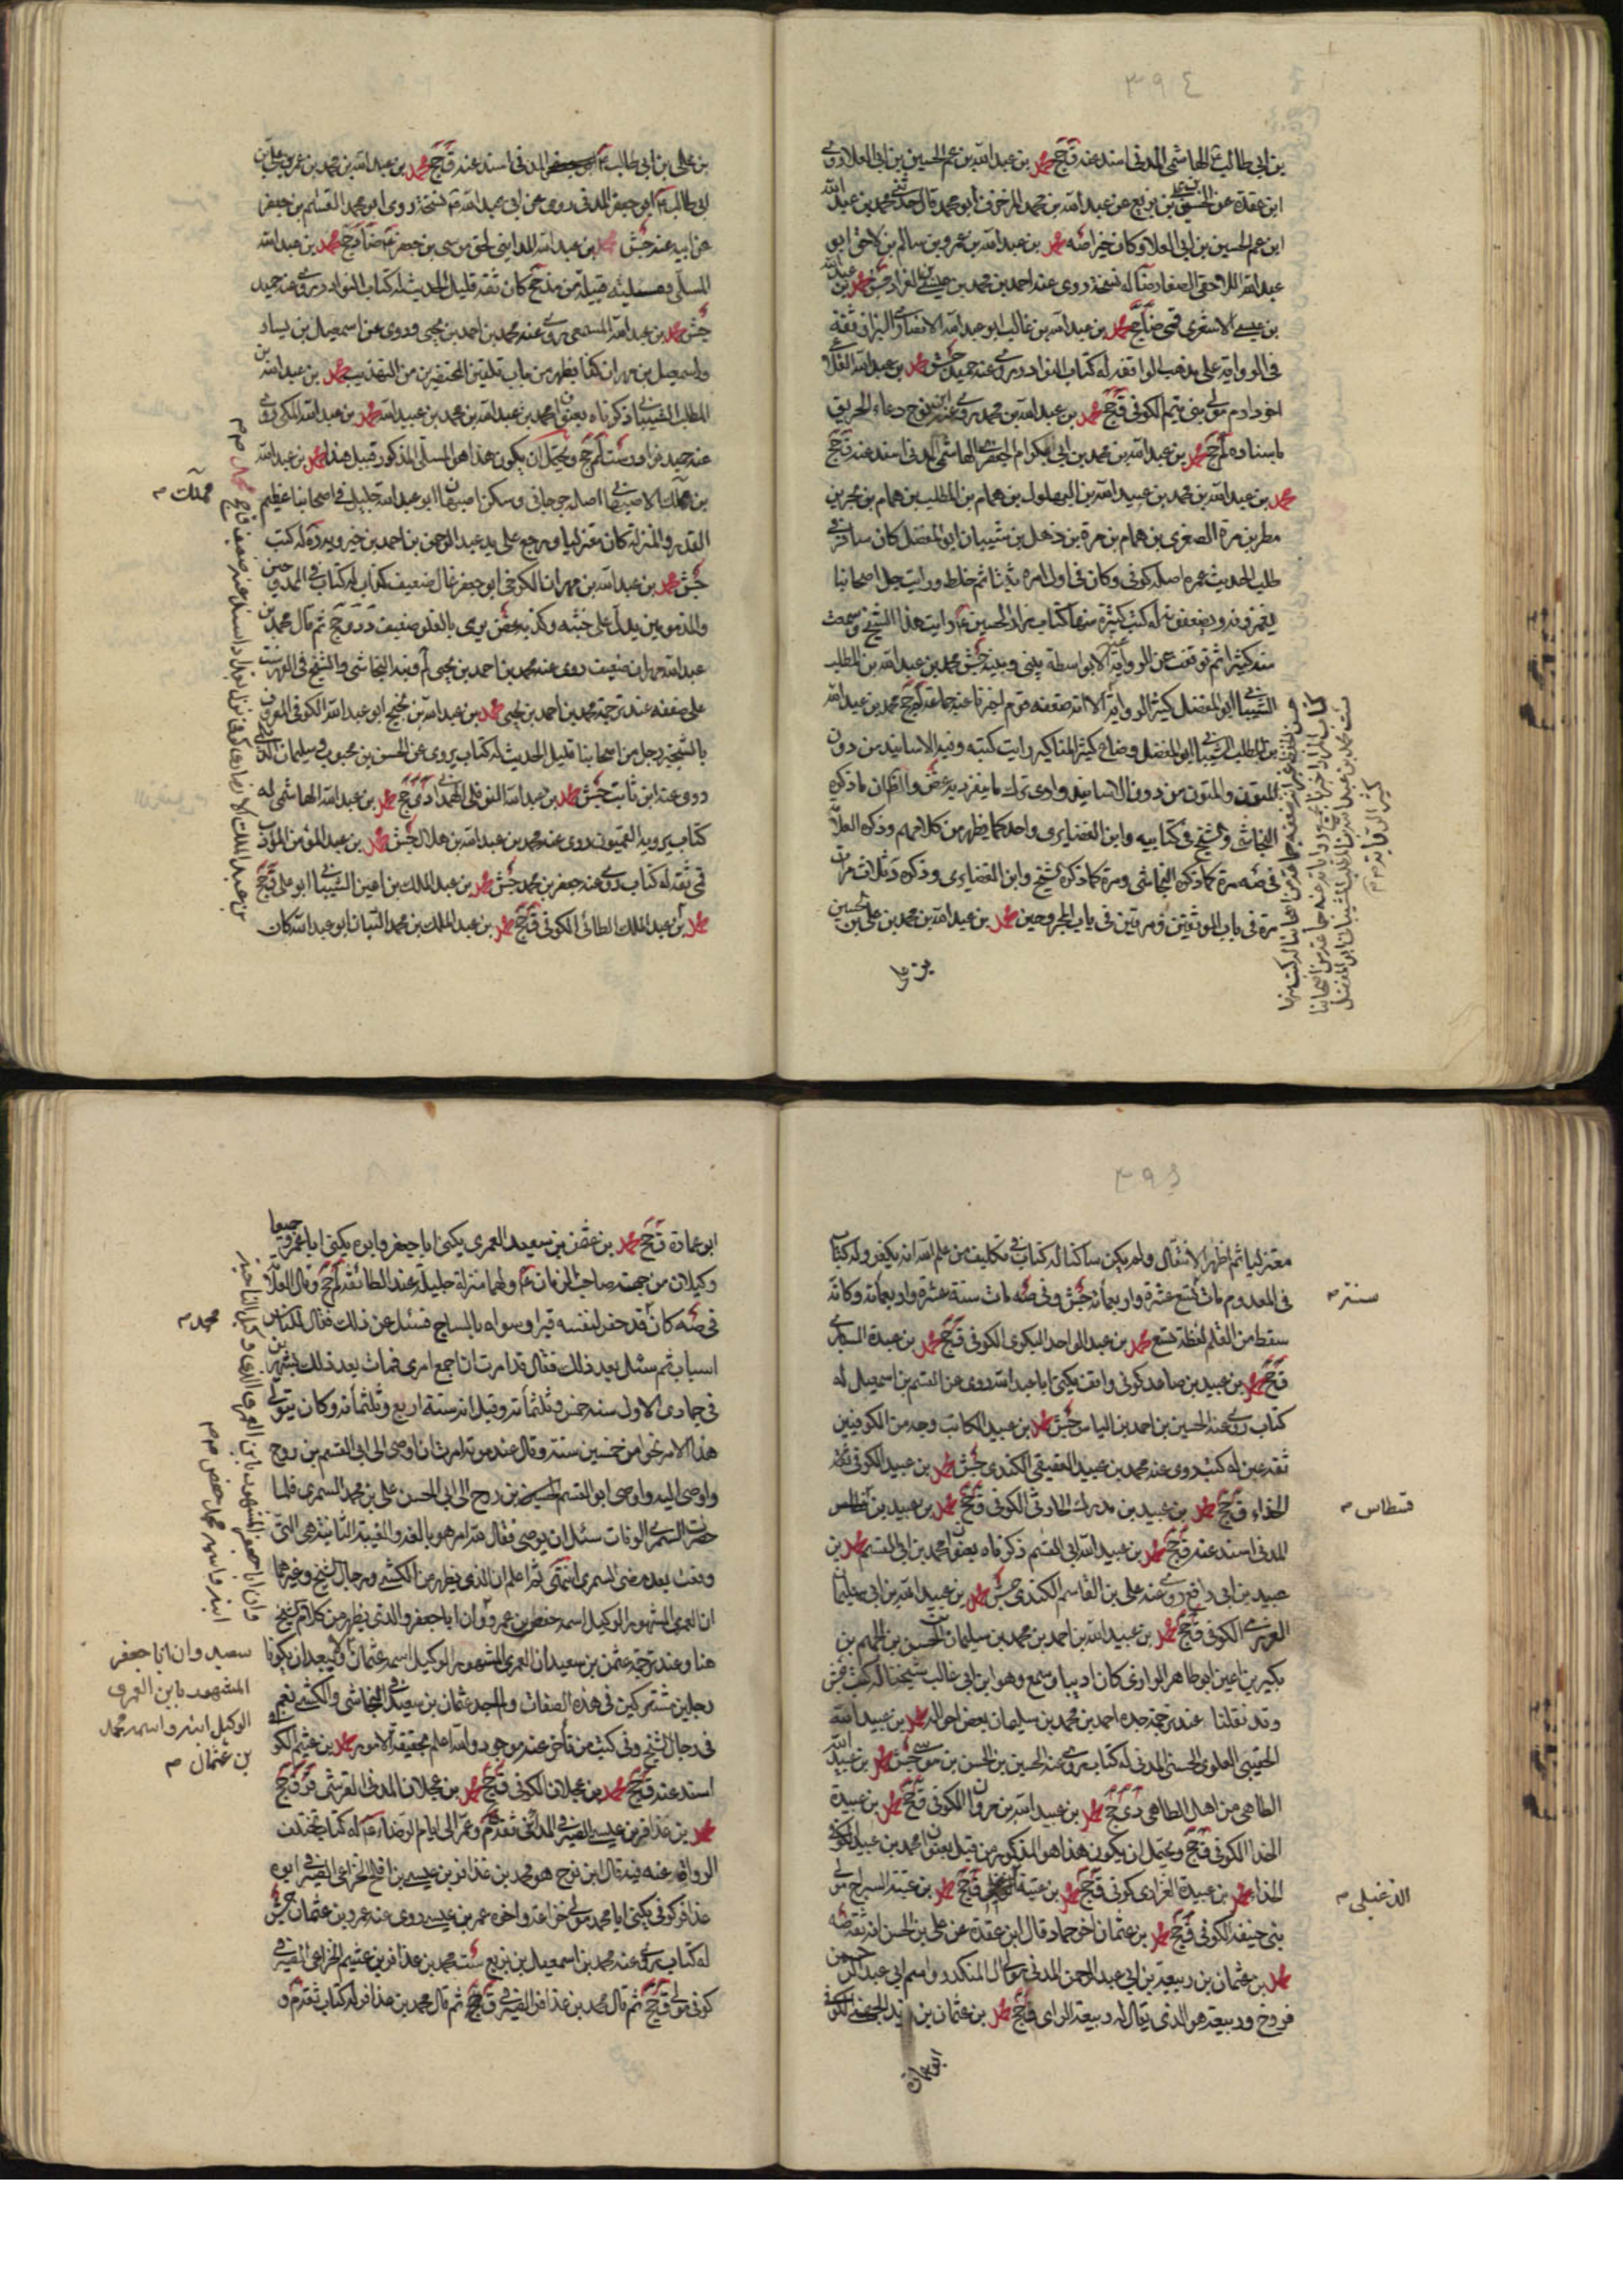 ٣٩٤
بن ابي طالب ع الهاشمي المدني اسند عنه ق جخ محمد بن عبد الله بن عم الحسين بن ابي العلا روى
ابن عقدة عن عن عبد الله بن محمد ابو محمد قال محمد بن عبد الله
ابن عم الحسين بن ابي العلا وكان خيرا صه محمد بن عبد الله بن عمرو بن سالم بن لاحق ابو
عبد الله اللاحقي الصفار ضا له نسخة روى عنه احمد بن محمد بن عيسى جش محمد بن عبد الله
بن عيسى الاشعري قمي ضا جخ محمد بن عبد الله بن غالب ابو عبد الله الانصاري البزاز ثقة
في الرواية على مذهب الواقفة له كتاب النوادر روى عنه حميد جش محمد بن عبد الله
اخو ادم مولى بني تيم الكوفي ق جخ محمد بن عبد الله بن محمد روى دعاء الحريق
باسناده لم جخ محمد بن عبد الله بن محمد بن ابي الكرام الجعفري الهاشمي المدني اسند عنه ق جخ
محمد بن عبد الله بن محمد بن عبيد الله بن البهلول بن همام بن المطلب بن همام بن بحر بن
مطر بن مرة الصغرى بن همام بن مرة بن ذهل بن شيبان ابو المفضل كان سافر في
طلب الحديث عمره اصله كوفي وكان في اول امره ثبتا ثم خلط ورايت جل اصحابنا
يغمزونه ويضعفونه له كتب كثيرة منها كتاب مزار الحسين ع رايت هذا الشيخ وسمعت
منه كثيرا ثم توقفت عن الرواية عنه الا بواسطة بيني وبينه جش محمد بن عبد الله بن المطلب
الشيباني ابو المفضل كثير الرواية الا انه ضعفه قوم اخبرنا عنه جماعة لم جخ محمد بن عبد الله
بن المطلب الشيباني ابو المفضل وضاع كثير المناكير رايت كتبه وفيه الاسانيد من دون
المتون والمتون من دون الاسانيد وارى ترك ما ينفرد به غض والظ ان ما ذكره
النجاشي والشيخ في كتابيه وابن الغضايري واحد كما يظهر من كلامهم وذكره العلامة
في صه مرة كما ذكره النجاشي ومرة كما ذكره الشيخ وابن الغضايري وذكره د ثلاث مرات
مرة في باب الموثقين ومرتين في باب المجروحين محمد بن عبد الله بن محمد بن علي بن الحسين
بن علي
بن علي بن ابي طالب ع المدني اسند عنه ق جخ محمد بن عبد الله بن محمد بن عمر بن علي بن
ابي طالب ع ابو جعفر المدني روى عن ابي عبد الله ع نسخة روى ابو محمد القسم بن جعفر
عن ابيه عنه جش محمد بن عبد الله المدايني لحق موسى بن جعفر ع ضا جخ محمد بن عبد الله
المسلي ومسلية قبيلة من مذحج كان ثقة قليل الحديث له كتاب النوادر روى عنه حميد
جش محمد بن عبد الله المسمعي روى عنه محمد بن احمد بن يحيى وروى عن اسمعيل بن يسار
واسمعيل بن مهران كذا يظهر من باب تلقين المحتضرين من التهذيب محمد بن عبد الله بن
المطلب الشيباني ذكرناه بعنوان محمد بن عبد الله بن محمد بن عبيد الله محمد بن عبد الله المكي روى
عنه حميد نوادر ست لم جخ ويحتمل ان يكون هذا هو المسلي المذكور قبيل هذا محمد بن عبد الله
بن مملك الاصبهاني اصله جرجاني وسكن اصبهان ابو عبد الله جليل في اصحابنا عظيم
القدر والمنزلة كان معتزليا ورجع على يد عبد الرحمن بن احمد بن خيرويه ره له كتب
جش محمد بن عبد الله بن مهران الكرخي ابو جعفر غال ضعيف كذاب له كتاب في الممدوحين
والمذمومين يدل على خبثه وكذبه غض يرمى بالغلو ضعيف د دى جخ ثم قال محمد بن
عبد الله مهران ضعيف روى عنه محمد بن احمد بن يحيى لم وفيه النجاشي والشيخ في الفهرست
على ضعفه عند ترجمة محمد بن احمد بن يحيى محمد بن عبد الله بن نجيح ابو عبد الله الكوفي المعروف
بالشخير رجل من اصحابنا قليل الحديث له كتاب يروى عن الحسن بن محبوب وسليمان
روى عنه ابن ثابت جش محمد بن عبد الله النوفلي الهمداني دى جخ محمد بن عبد الله الهاشمي له
كتاب يرويه القميون روى عنه محمد بن عبد الله بن هلال جش محمد بن عبد المؤمن المؤدب
قمي ثقة له كتاب روى عنه جعفر بن محمد جش محمد بن عبد الملك بن اعين الشيباني ابو علي ق جخ
محمد بن عبد الملك الطائي الكوفي ق جخ محمد بن عبد الملك بن محمد التبان ابو عبد الله كان
مملك م
٣٩٥
معتزليا ثم اظهر الانتقال ولم يكن ساكنا له كتاب في تكليف من علم الله انه يكفر وله كتاب
في المعدوم مات لتسع عشرة واربعمائة جش وفي صه مات سنة عشرة واربعمائة وكانه
سقط من القلم لفظة تسع محمد بن عبد الواحد البكري الكوفي ق جخ محمد بن عبدة السابري
ق جخ محمد بن عبيد بن صاعد كوفي واقف يكنى ابا عبد الله روى عن القسم بن اسمعيل له
كتاب روى عنه الحسين بن احمد بن الياس جش محمد بن عبيد الكاتب وجه من الكوفيين
ثقة عين له كتب روى عنه محمد بن عبيد العقيقي الكندي جش محمد بن عبيد الكوفي ثقة
الحذاء ق جخ محمد بن عبيد بن مدرك الحارثي الكوفي ق جخ محمد بن عبيد بن
المدني اسند عنه ق جخ محمد بن عبيد الله ابي القسم ذكرناه بعنوان محمد بن ابي القسم محمد بن
عبيد بن ابي رافع روى عنه علي بن القاسم الكندي جش محمد بن عبيد الله بن ابي سليمان
العرزمي الكوفي ق جخ محمد بن عبيد الله بن احمد بن محمد بن سليمان بن الحسن بن الجهم بن
بكير بن اعين ابو طاهر الزراري كان اديبا وسمع وهو ابن ابي غالب شيخنا له كتب جش
وقد نقلنا عند ترجمة جده احمد بن محمد بن سليمان بعض احواله محمد بن عبيد الله
الحقيبي العلوي الحسني المدني له كتاب روى عنه الحسين بن الحسن بن موسى جش محمد بن عبيد الله
الطاهي من اهل الطاهي دى جخ محمد بن عبيد الله بن مروان الكوفي ق جخ محمد بن عبيدة
الحذا الكوفي ق جخ ويحتمل ان يكون هذا هو المذكور من قبل بعنوان محمد بن عبيد الكوفي
الحذاء محمد بن عبيدة الفزاري كوفي ق جخ محمد بن ق جخ محمد بن عقبة السراج مولى
بني حنيفة الكوفي ق جخ محمد بن عثمان اخو حماد قال ابن عقدة عن علي بن الحسن انه ثقة صه
محمد بن عثمان بن ربيعة بن ابي عبد الرحمن المدني مولى ال المنكدر واسم ابي عبد الرحمن
فروخ وربيعة هو الذي يقال له ربيعة الراي ق جخ محمد بن عثمان بن زيد الجهني الكوفي
سنة م
قسطاس م
ابو عمارة
ابو عمارة ق جخ محمد بن عثمن بن سعيد العمري يكنى ابا جعفر وابوه يكنى ابا عمرو جميعا
وكيلان من جهة صاحب الزمان ع ولهما منزلة جليلة عند الطائفة لم جخ وقال العلامة
في صه كان قد حفر لنفسه قبرا وسواه بالساج فسئل عن ذلك فقال للناس
اسباب ثم سئل بعد ذلك فقال قد امرت ان اجمع امري فمات بعد ذلك بشهرين
في جمادى الاولى سنة خمس وثلثمائة وقيل انه سنة اربع وثلثمائة وكان يتولى
هذا الامر نحوا من خمسين سنة وقال عند موته امرت ان اوصي الى ابي القسم بن روح
واوصى اليه واوصى ابو القسم الحسين بن روح الى ابي الحسن علي بن محمد السمري فلما
حضرت السمري الوفات سئل ان يوصي فقال لله امر هو بالغه والغيبة الثانية هي التي
وقعت بعد مضي السمري انتهى ثم اعلم ان الذي يظهر من الكشي ورجال الشيخ وغيرهما
ان العمري المشهور الوكيل اسمه حفص بن عمرو وان ابا جعفر والذي يظهر من كلام الشيخ
هنا وعند ترجمة عثمن بن سعيد ان العمري المشهور الوكيل اسمه عثمان ولا يبعد ان يكونا
رجلين مشتركين في هذه الصفات ولم اجد عثمان بن سعيد في النجاشي والكشي نعم
في رجال الشيخ وفي كتب من تأخر عنه موجود والله اعلم بحقيقة الامور محمد بن عثيم الكو
اسند عنه ق جخ محمد بن عجلان الكوفي ق جخ محمد بن عجلان المدني القرشي قر ق جخ
محمد بن عذافر بن عيسى الصيرفي المدايني ثقة ق م وعمر الى ايام الرضا ع له كتاب تختلف
الرواة عنه فيه قال ابن نوح هو محمد بن عذافر بن عيسى بن افلح الخزاعي الصيرفي ابوه
عذافر كوفي يكنى ابا محمد مولى خزاعة واخوه عمر بن عيسى روى عنه عمرو بن عثمان جش
له كتاب روى عنه محمد بن اسمعيل بن بزيع ست محمد بن عذافر بن عثيم الخزاعي الصيرفي
كوفي مولى ق جخ ثم قال محمد بن عذافر الصيرفي ق جخ ثم قال محمد بن عذافر له كتاب ثقة م و
سعيد وان ابا جعفر
المشهور بابن العمري
الوكيل ابنه واسمه محمد
بن عثمان م